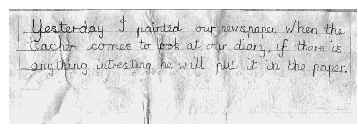 Yesterday I painted our newspaper when the
teacher comes to look at our diary, if there is
anything intresting he will put it in the paper.